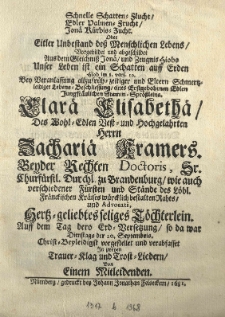 Schnelle Schatten-Flucht/
Edler Palmen-Frucht/
Jonä Kürbis-Sucht.
Oder
Eitler Unbestand deß Menschlichen Lebens/
Vorgebildet und abgeschildet
Aus dem Gleichnuß Jonä/ und Zeugnis Hiobs
Unser Leben ist ein Schatten auff Erden
Hiob im 8. vers. 10.
Bey Veranlassung
Jungfräulichen
Clara Elisabetha/
Des Wohl-Edlen Vest- und Hochgelahrten
Herrn
Zachariä Kramers.
Beyder Rechten Doctoris, Sr.
Churfürstl. Durchl. zu Brandenburg/ wie auch
verschiedener Fürsten und Stände des Löbl.
Fränckischen Kräises würcklich bestalten Rahts/
und Advocati,
Hertz-geliebtes seliges Töchterlein.
Auff dem Tag dero Erd-Versetzung/ so da war
Dienstags der 20. Septembris,
Christ-Beyleidigst vorgestellet und verabfasset
In zweyen
Trauer-Klag und Trost-Liedern/
Von
Einem Mitleidenden.
Nürnberg/ gedruckt bey Johann Jonathan Felseckern/